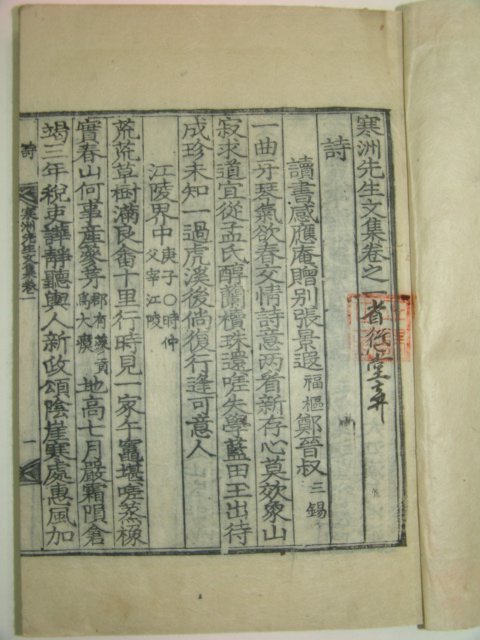 寒洲先生文集卷之一
省行堂弆
詩
讀書感應庵贈別張景遐福樞鄭晉叔三錫
一曲牙琴氣欲春文情詩意兩看新存心莫效象山
寂求道宜從孟氏醇蘭櫝珠還嗟失學藍田玉出待
成珍未知一過虎溪後倘復行逢可意人
江陵界中庚子〇時仲父宰江陵
荒荒草樹滿良畬十里行時見一家午竈堪嗟蒸橡
實春山何事産蔘芽郡有蔘貢爲大瘼地高七月嚴霜隕倉
竭三年稅吏譁靜聽輿人新政頌陰崖寒處惠風加
詩
寒洲先生文集卷一
一